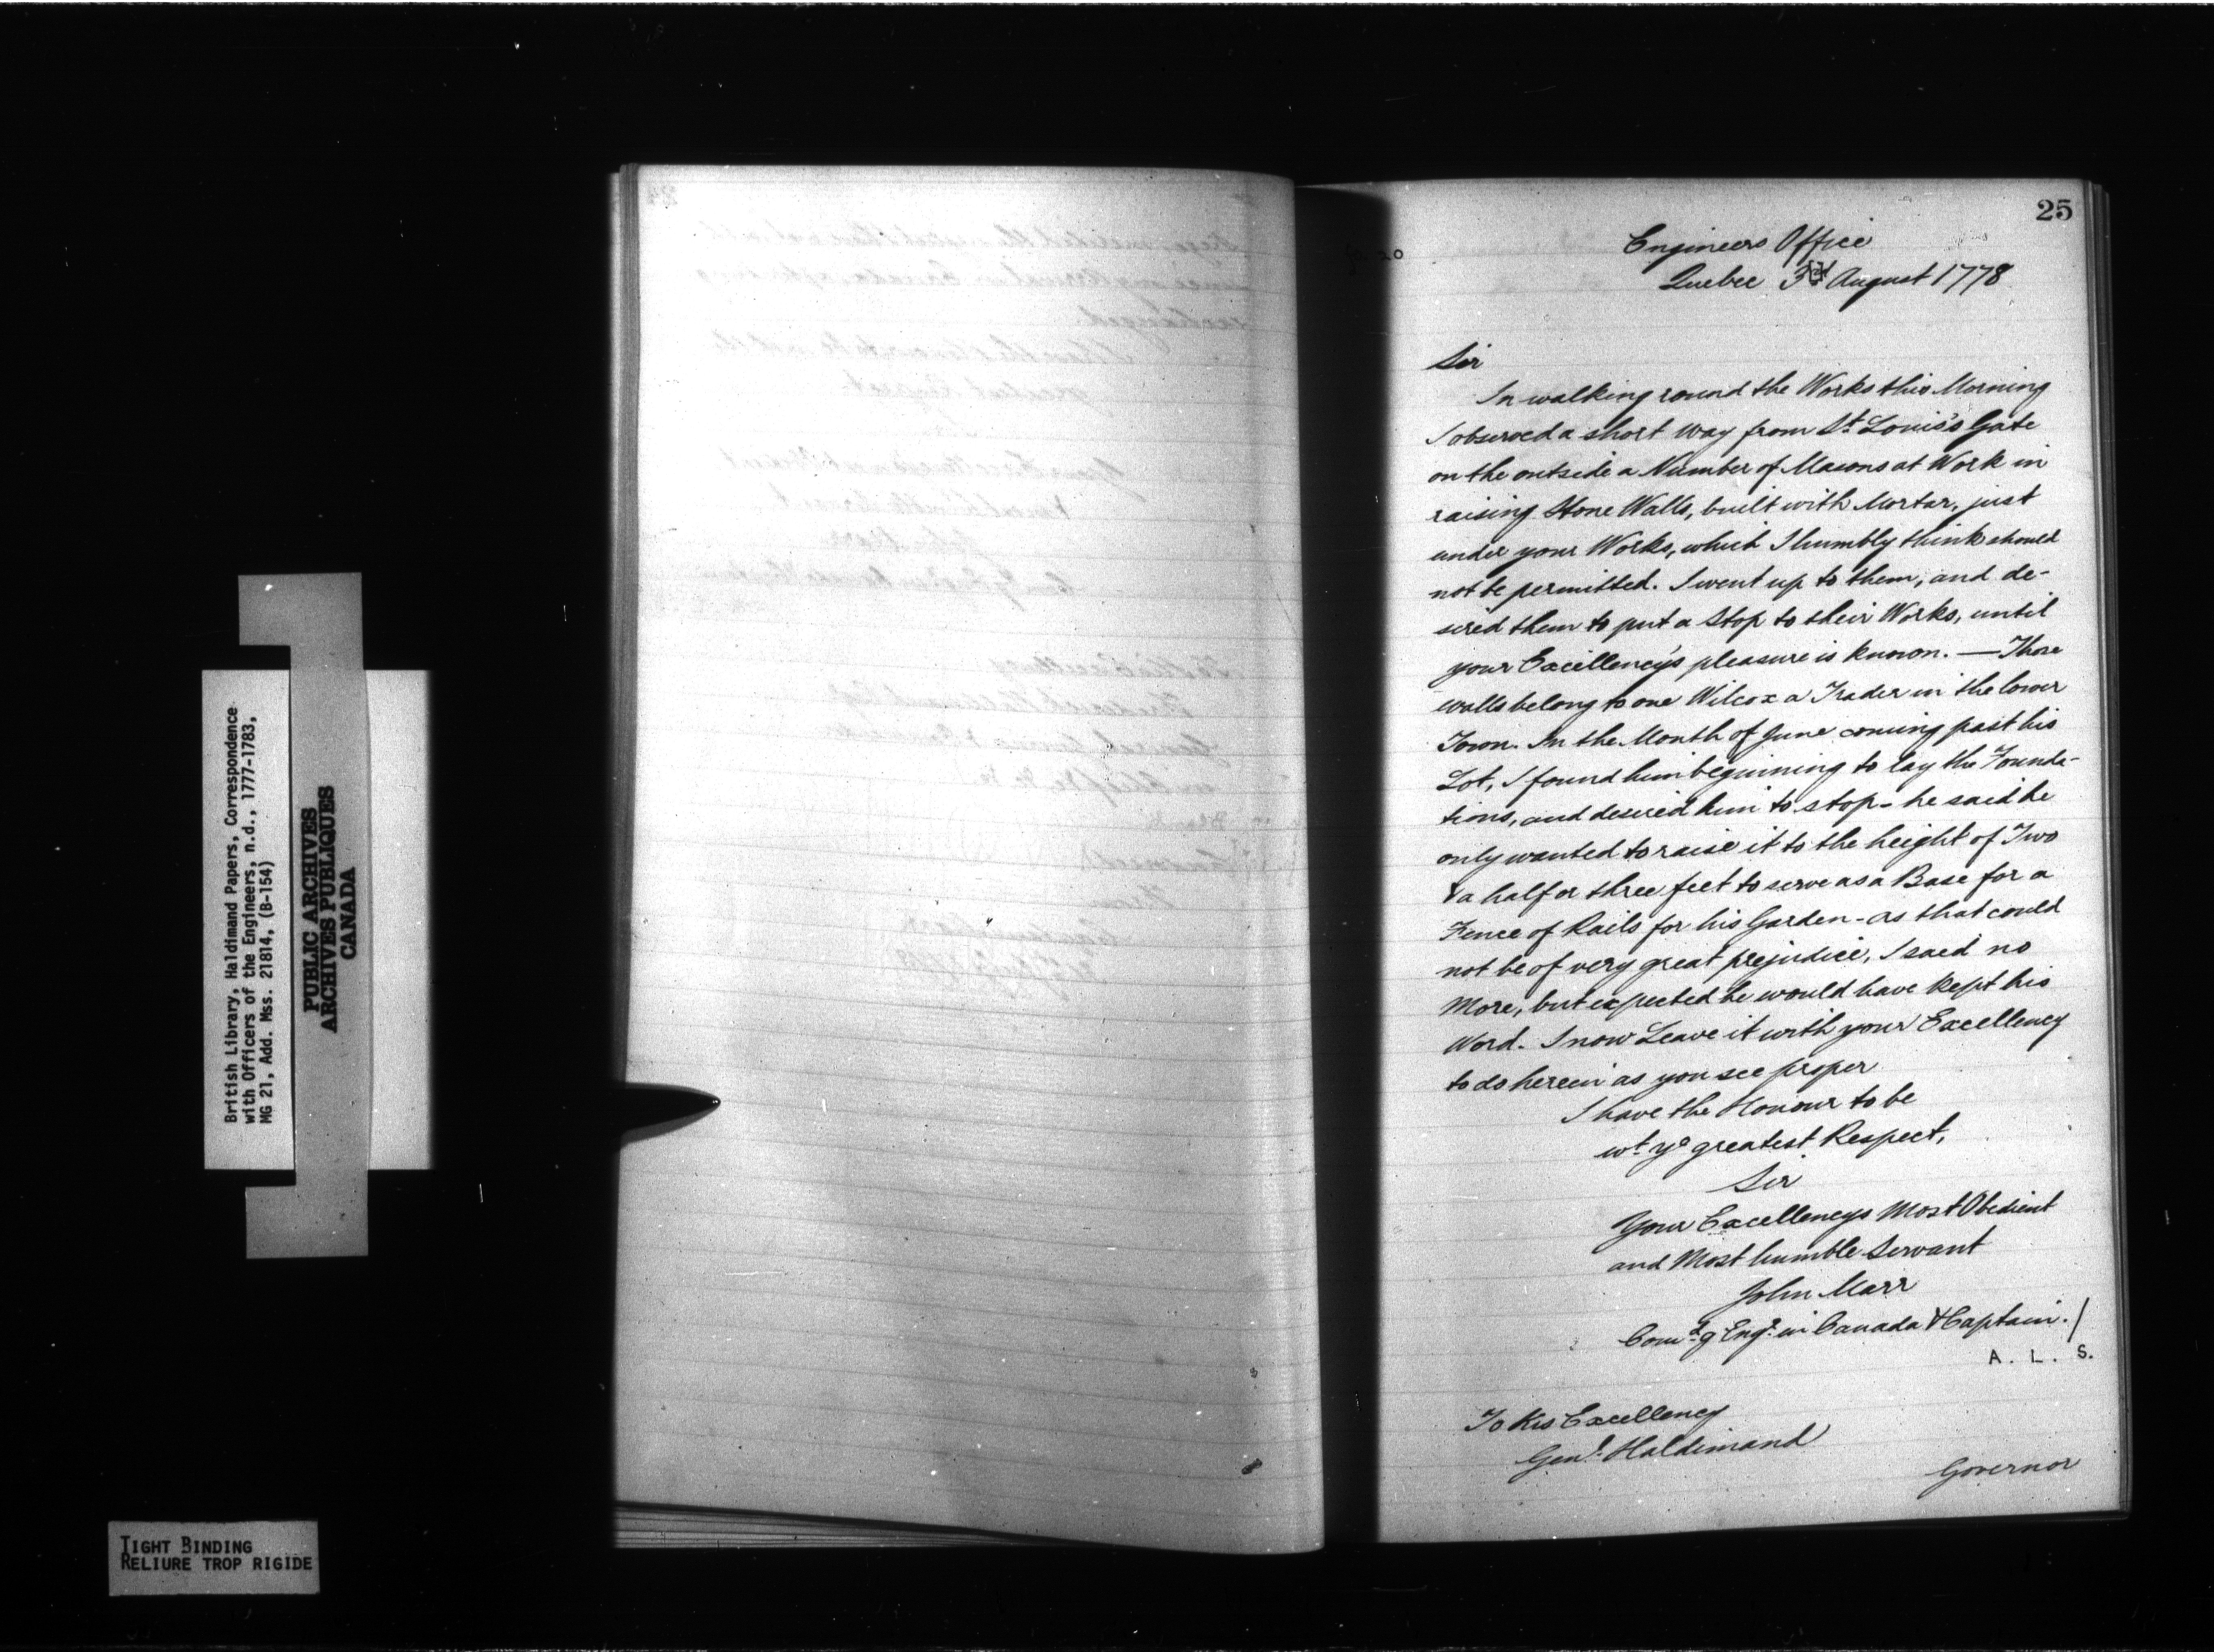 British Library, Haldimand Papers, Correspondence
with Officers of the Engineers, n.d., 1777-1783,
MG 21, Add. Mss. 21814, (B-154)
PUBLIC ARCHIVES
ARCHIVES PUBLIQUES
CANADA
TIGHT BINDING
RELIURE TROP RIGIDE
25
Engineers Office
Quebec 3rd August 1778
Sir
In walking round the Works this Morning
I observed a short way from St Louis's Gate
on the outside a Number of Masons at Work in
raising Stone Walls, built with Mortar, just
under your Works, which I humbly think should
not be permitted. I went up to them, and de-
sired them to put a Stop to their Works, until
your Excellency's pleasure is known. — Those
walls belong to one Wilcox a Trader in the lower
Town. In the Month of June coming past his
Lot, I found him beginning to lay the Founda-
tions, and desired him to stop - he said he
only wanted to raise it to the height of Two
& a half or three feet to serve as a Base for a
Fence of Rails for his Garden - as that could
not be of very great prejudice, I said no
More, but expected he would have kept his
Word. I now Leave it with your Excellency
to do herein as you see proper
I have the Honour to be
wt ye greatest Respect,
Sir
Your Excellencys Most Obedient
and Most humble Servant
John Marr
Comdg Engr in Canada & Captain./
A. L. S.
To His Excellency
Genl. Haldimand
Governor